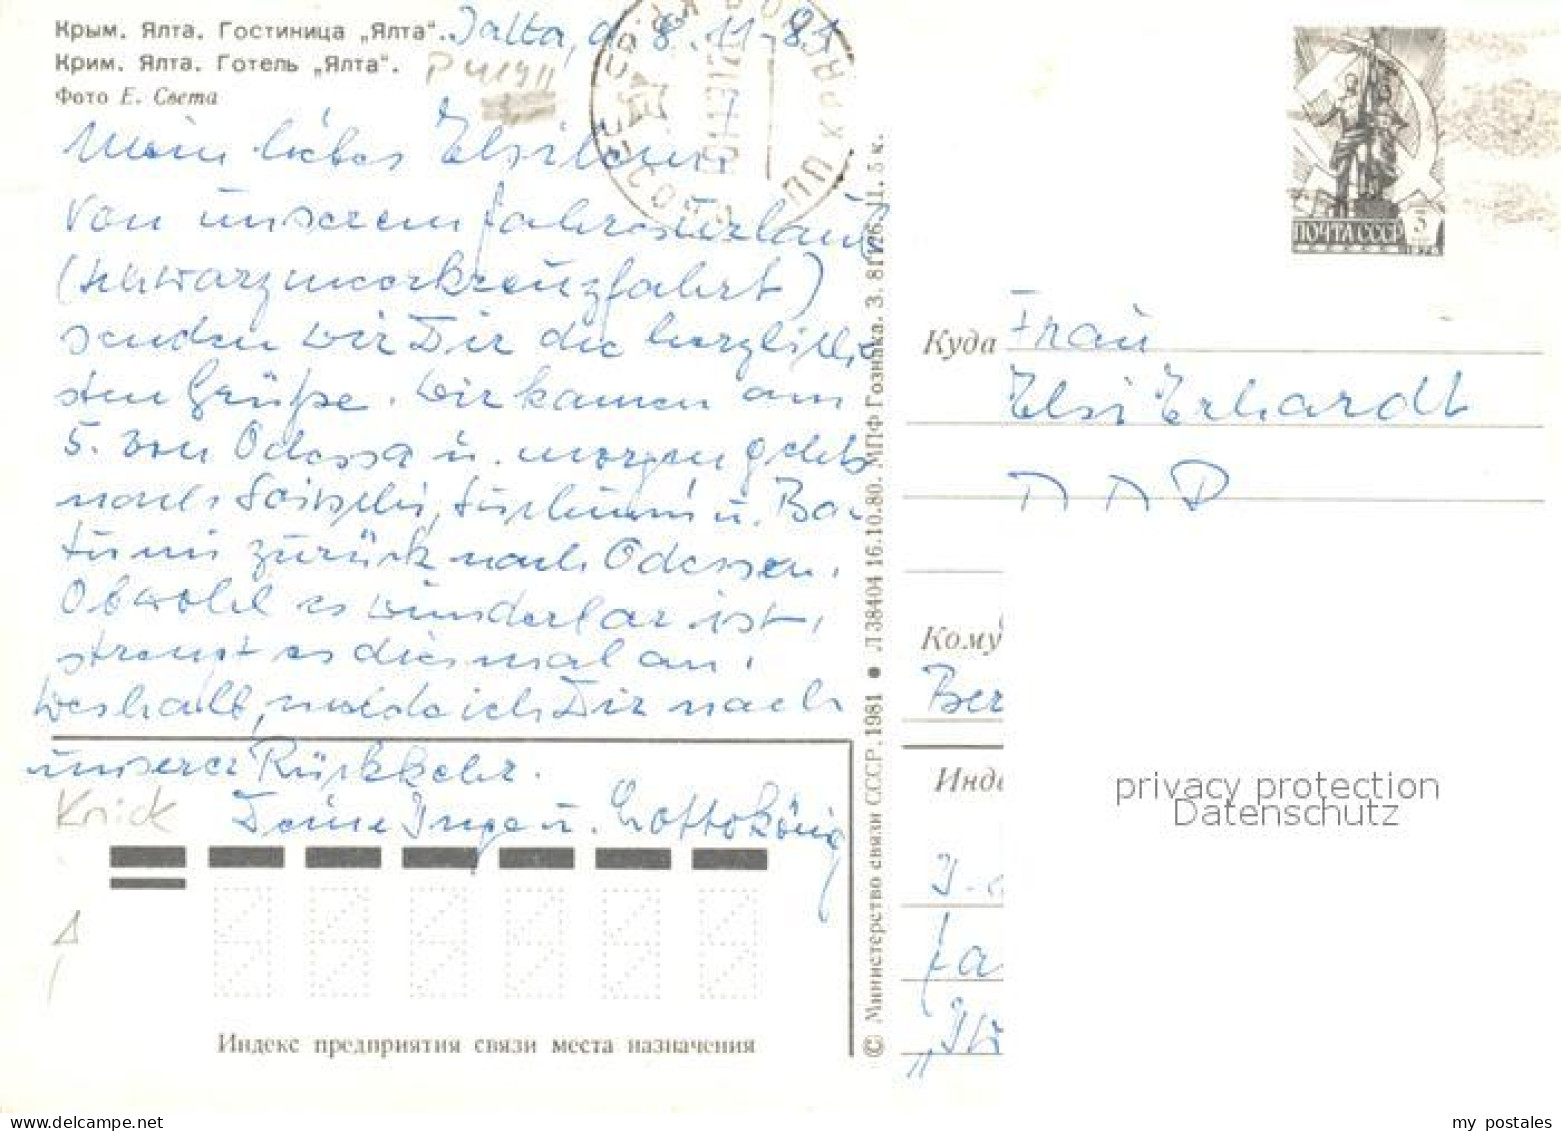 Крым. Ялта. Гостиница „Ялта“. Jalta, d. 8.11.81
Крим. Ялта. Готель „Ялта“.
Фото Е. Света
Mein liebes
von unserem Jahresurlaub
(Schwarzmeerkreuzfahrt)
senden wir Dir die herzlich
sten Grüße. Wir kamen am
5. von Odessa u. morgen gehts
nach Sotschi, Suchumi u. Ba-
tumi zurück nach Odessa.
Obwohl es wunderbar ist,
strengt es diesmal an,
weshalb, melde ich Dir nach
unserer Rückkehr.
Deine Inge u. Lotto König
Knick
Индекс предприятия связи места назначения
© Министерство связи СССР, 1981 • Л 38404 16.10.80. МПФ Гознака. З. 81126. Ц. 5 к.
ПОЧТА СССР
Куда Frau
Elsi Erhardt
DDR
Кому
Ber
Инд
privacy protection
Datenschutz
my postales